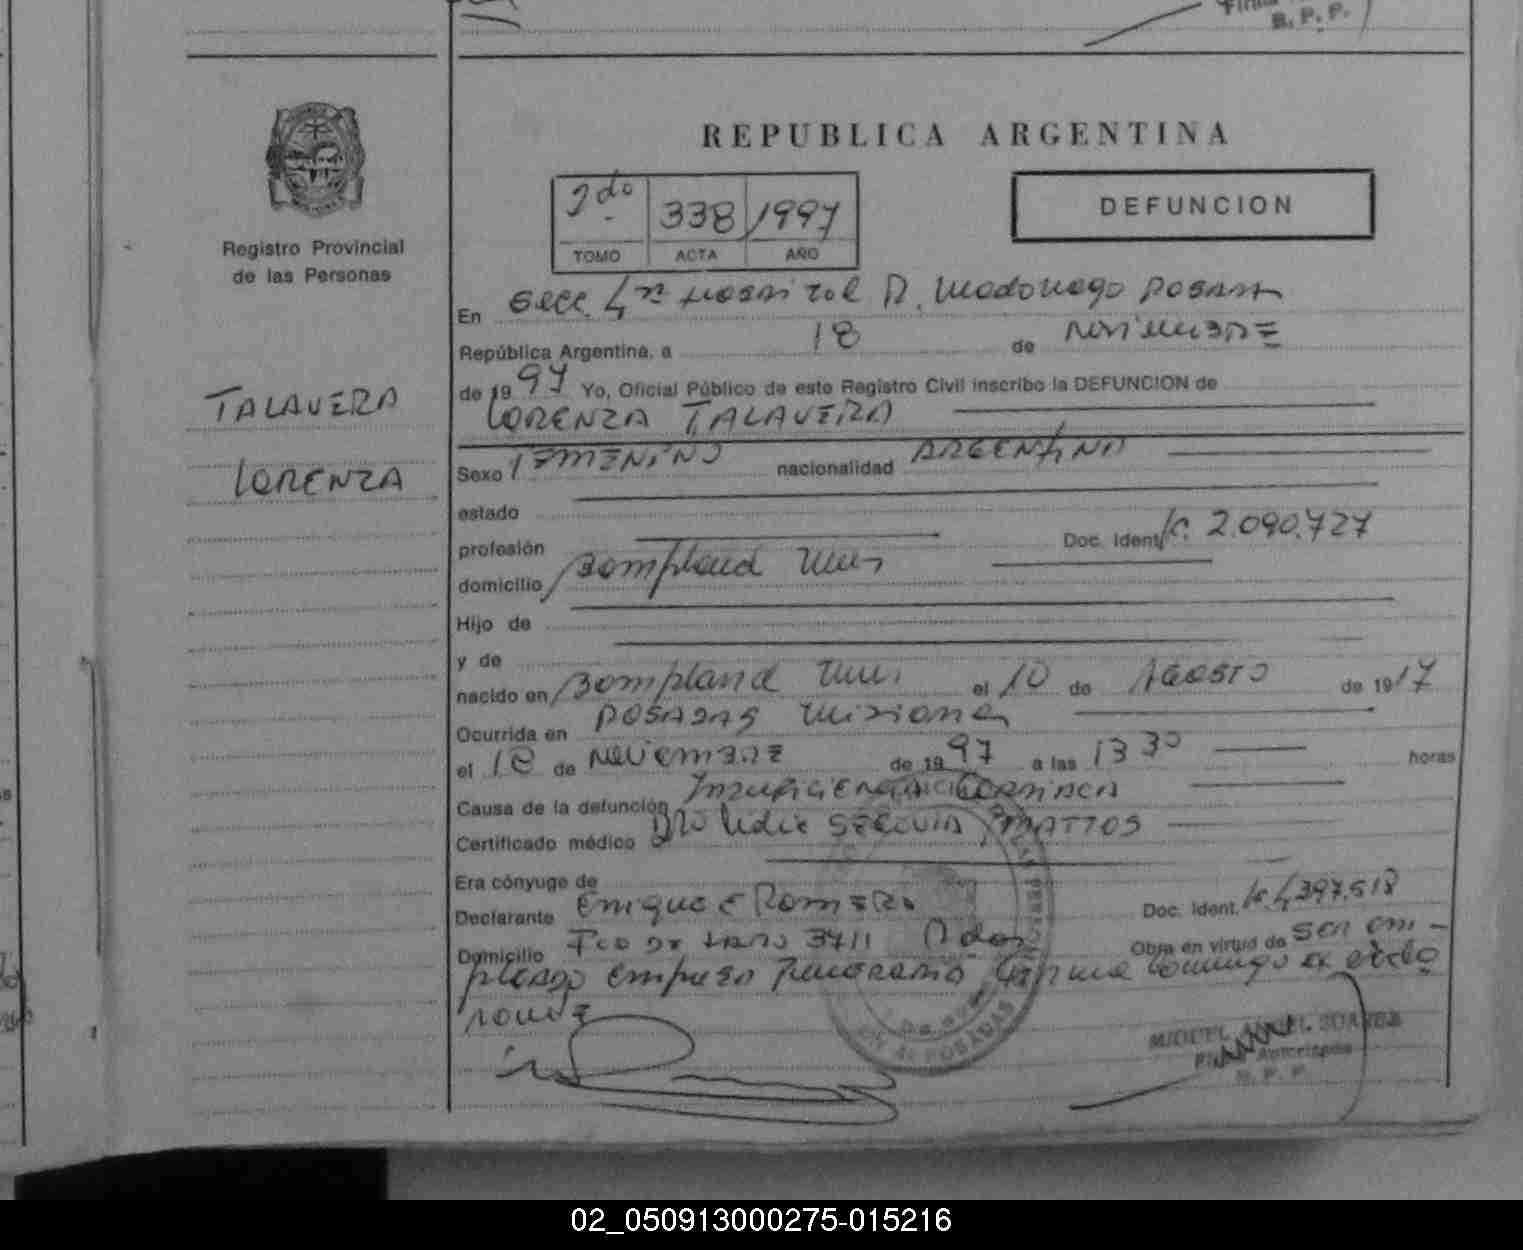 B. P. P.
REPUBLICA ARGENTINA
2do 338 1997
TOMO ACTA AÑO
DEFUNCION
Registro Provincial
de las Personas
TALAVERA
LORENZA
En Secc. 4ta Hospital R. Madariaga Posadas
República Argentina, a 18 de Noviembre
de 1997 Yo, Oficial Público de este Registro Civil inscribo la DEFUNCION de
LORENZA TALAVERA
Sexo FEMENINO nacionalidad ARGENTINA
estado
profesión Doc. Ident. lc. 2.090.727
domicilio Bompland Mnes
Hijo de
y de
nacido en Bompland Mnes el 10 de Agosto de 1917
Ocurrida en POSADAS Misiones
el 18 de Noviembre de 1997 a las 13 30 horas
Causa de la defunción Insuficiencia Cardiaca
Certificado médico Dra Lidia SEGOVIA MATTOS
Era cónyuge de
Declarante Enrique E Romero Doc. Ident. 4.397.518
Domicilio 3711 Pdas Obra en virtud de ser em-
pleado empresa Funeraria firma
MIGUEL ANGEL SUAREZ
Autorizada
R. P. P.
POSADAS
02_050913000275-015216